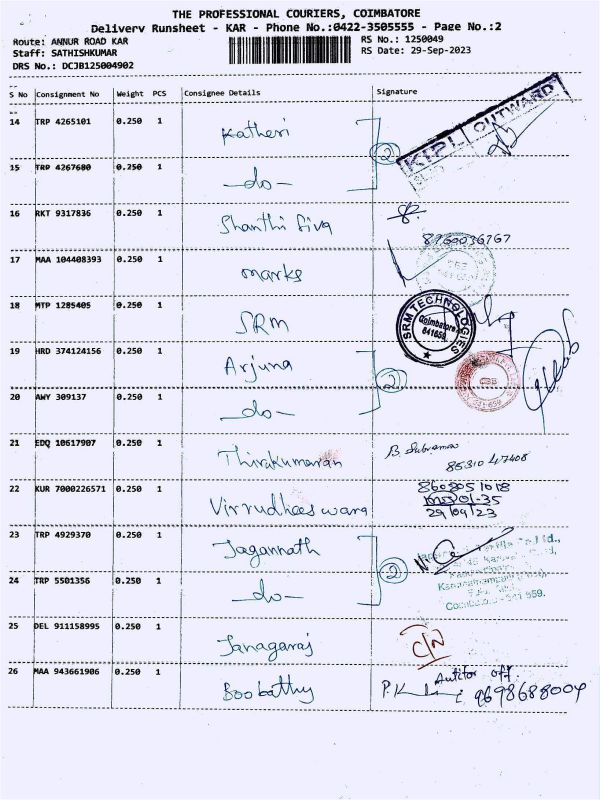 THE PROFESSIONAL COURIERS, COIMBATORE
Delivery Runsheet - KAR - Phone No.:0422-3505555 - Page No.:2
Route: ANNUR ROAD KAR
RS No.: 1250049
Staff: SATHISHKUMAR
RS Date: 29-Sep-2023
DRS No.: DCJB125004902
S No Consignment No Weight PCS Consignee Details Signature
14 TRP 4265101 0.250 1 Katheri 2
KIPL OUTWARD
15 TRP 4267680 0.250 1 -do-
16 RKT 9317836 0.250 1 Shanthi Siva
17 MAA 104408393 0.250 1 marks
18 MTP 1285405 0.250 1 SRM
SRM TECHNOLOGIES
Coimbatore
641659
19 HRD 374124156 0.250 1 Arjuna 2
20 AWY 309137 0.250 1 -do-
21 EDQ 10617907 0.250 1 Thirukumaran
85310 47408
22 KUR 7000226571 0.250 1 Virrudheeswara
8608051018
29/09/23
23 TRP 4929370 0.250 1 Jagannath 2
24 TRP 5501356 0.250 1 -do-
25 DEL 911158995 0.250 1 Janagaraj C/N
26 MAA 943661906 0.250 1 Boobathy
9698688004